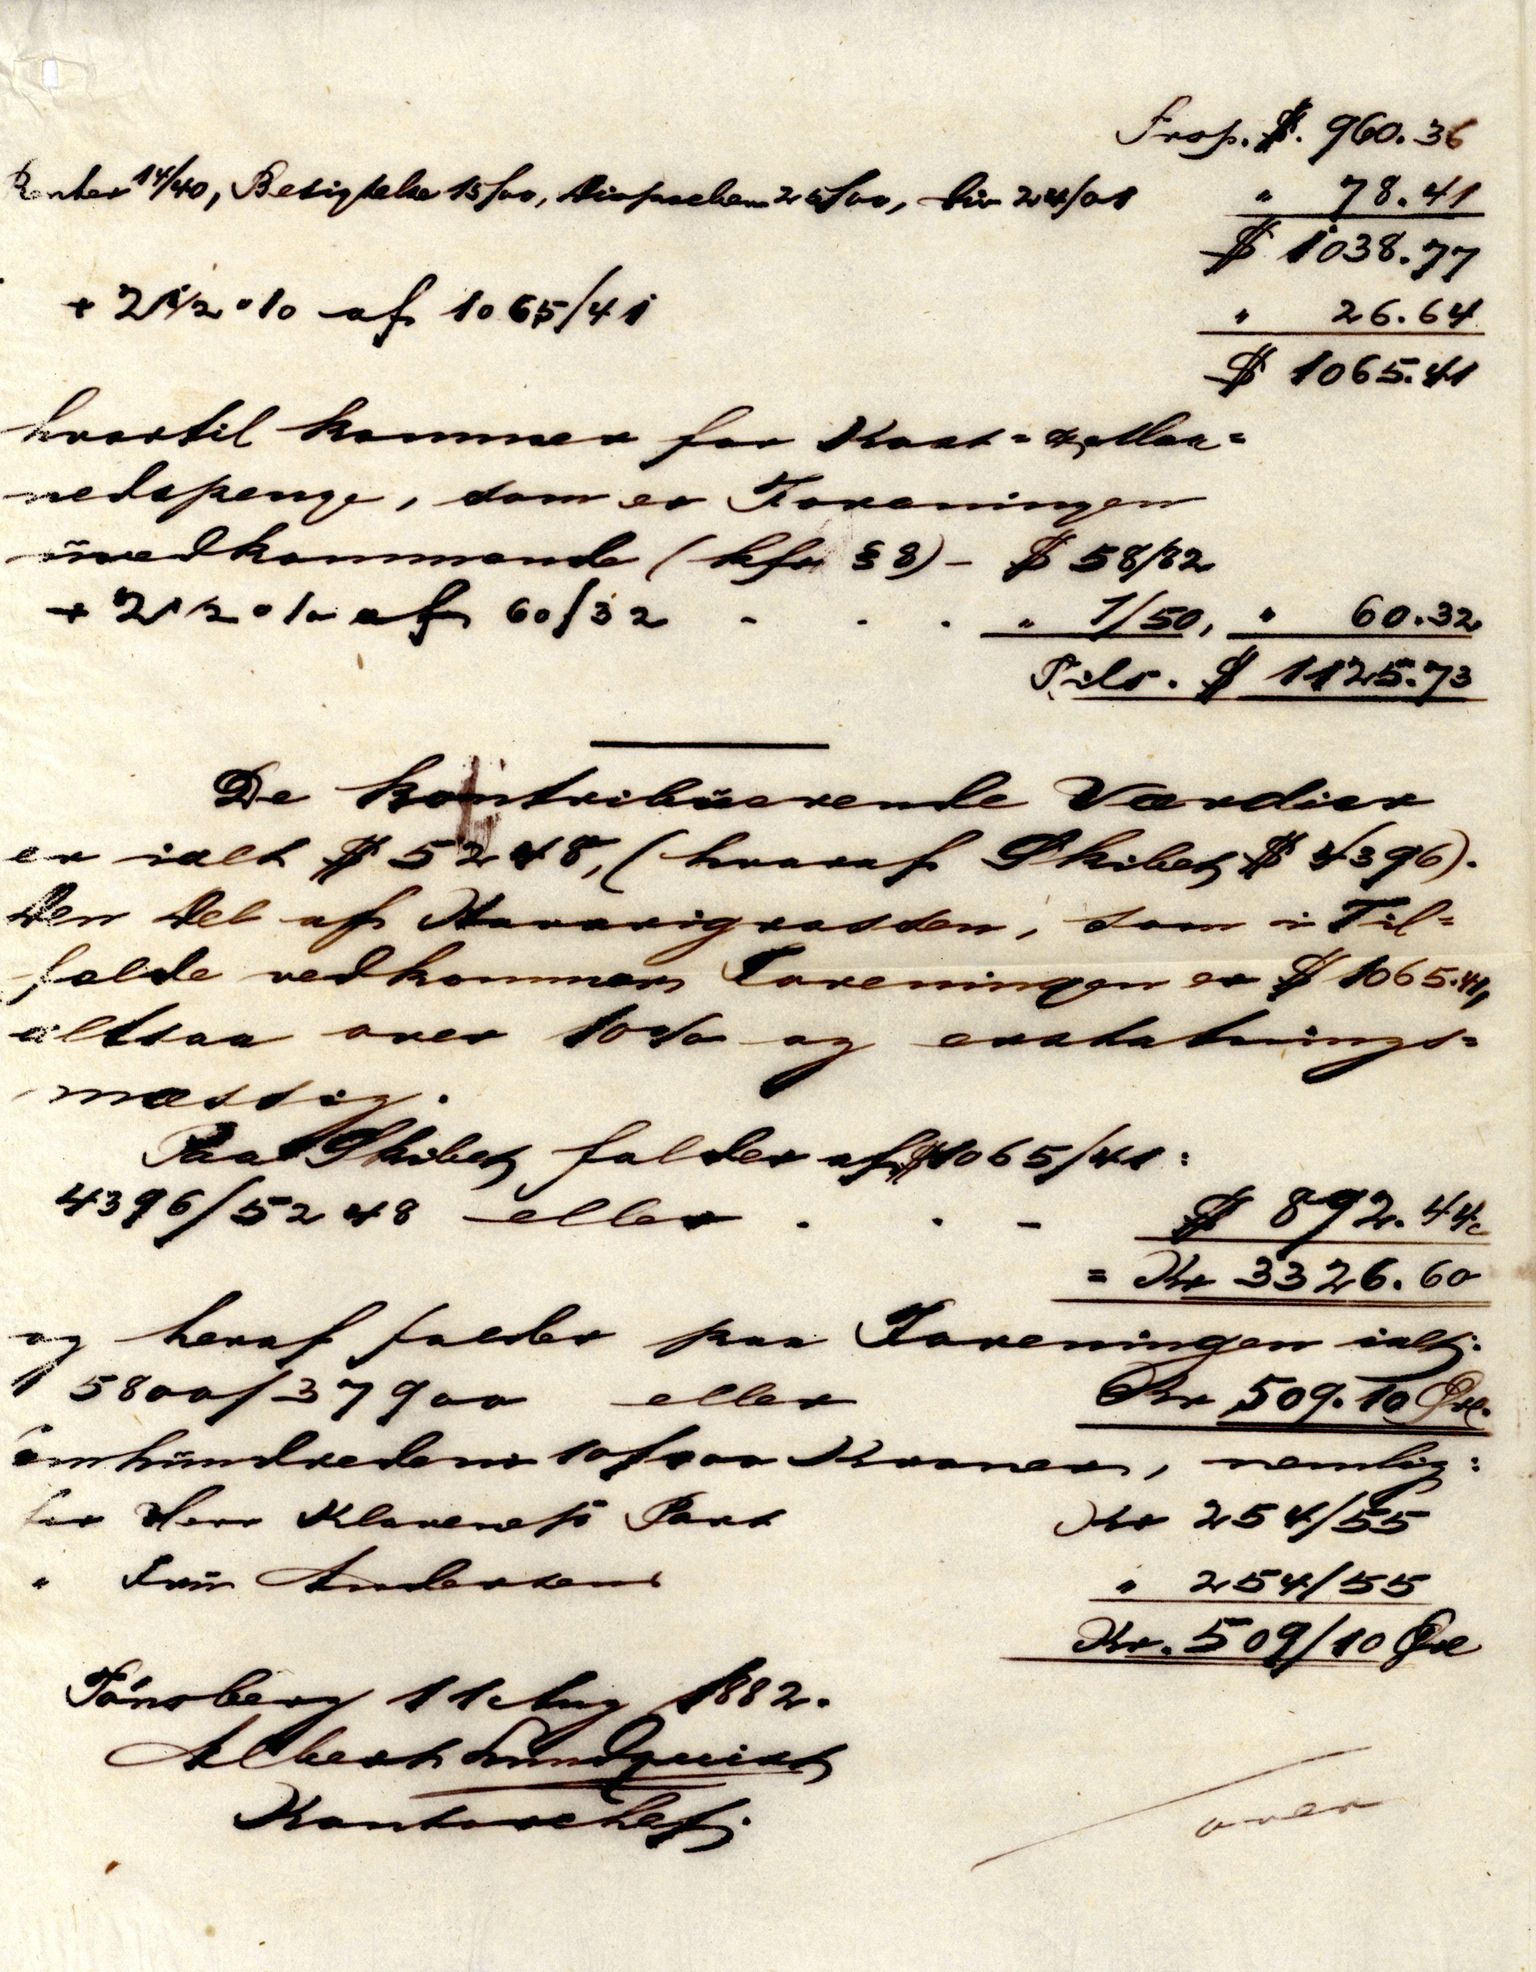 Trsp. $. 960.36
Renter 14/40, Besigtelse 15/00, Dispachen 25/00, div 24/01 " 78.41
$ 1038.77
+ 2 1/2 % af 1065/41 " 26.64
$ 1065.41
hvortil kommer for Kost= & Maa=
nedspenge, som er Foreningen
üvedkommende (kfr § 8) - $ 58/82
+ 2 1/2 % af 60/32 - . . " 1/50, " 60.32
Tils. $ 1125.73
De kontribüerende Værdier
er ialt $ 5248, (hvoraf Skibet $ 4396).
Den Del af Havarigrossen, som i Til=
fælde vedkommer Foreningen er $ 1065.41,
altsaa over 10 % og erstatnings=
mæssig.
Paa Skibet falder af $ 1065/41:
4396/5248 eller . . - $ 892.44c
= Kr 3326.60
og heraf falder paa Foreningen ialt:
5800/37900 eller Kr 509.10 Øre.
femhündredeni 10/100 Kroner, nemlig:
for Herr Klavenes's Part Kr 254/55
" Frü Andersens " 254/55
Kr. 509/10 Øre
Tönsberg 11 Aug 1882.
Albert Lundqwist
Kontorchef.
over